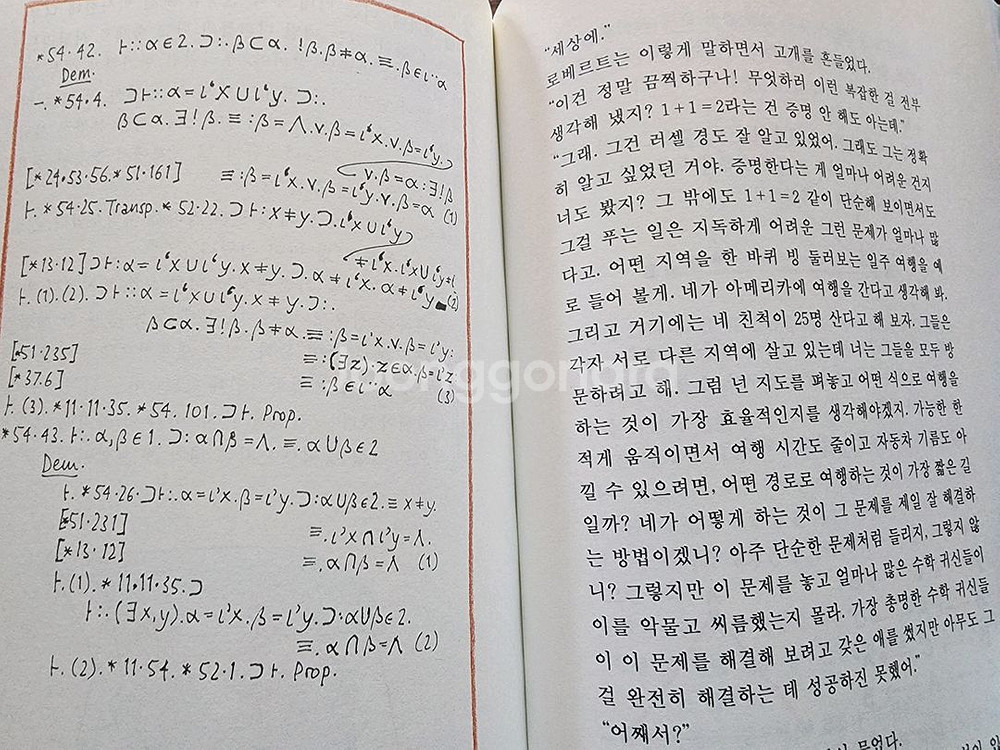 *54·42. ⊢::α∈2.⊃:.β⊂α.!β.β≠α.≡.β∈ι‘‘α
Dem.
⊢.*54·4. ⊃⊢::α=ι‘x∪ι‘y.⊃:.
β⊂α.∃!β.≡:β=Λ.v.β=ι‘x.v.β=ι‘y.
v.β=α:∃!β
[*24·53·56.*51·161] ≡:β=ι‘x.v.β=ι‘y.v.β=α (1)
⊢.*54·25.Transp.*52·22.⊃⊢:x≠y.⊃.ι‘x∪ι‘y
≠ι‘x.ι‘x∪ι‘y≠ι
[*13·12]⊃⊢:α=ι‘x∪ι‘y.x≠y.⊃.α≠ι‘x.α≠ι‘y (2)
⊢.(1).(2).⊃⊢::α=ι‘x∪ι‘y.x≠y.⊃:.
β⊂α.∃!β.β≠α.≡:β=ι‘x.v.β=ι‘y:
[*51·235] ≡:(∃z).z∈α.β=ι‘z
[*37·6] ≡:β∈ι‘‘α (3)
⊢.(3).*11·11·35.*54·101.⊃⊢. Prop.
*54·43.⊢:.α,β∈1.⊃:α∩β=Λ.≡.α∪β∈2
Dem.
⊢.*54·26.⊃⊢:.α=ι‘x.β=ι‘y.⊃:α∪β∈2.≡x≠y.
[*51·231] ≡.ι‘x∩ι‘y=Λ.
[*13·12] ≡.α∩β=Λ (1)
⊢.(1).*11·11·35.⊃
⊢:.(∃x,y).α=ι‘x.β=ι‘y.⊃:α∪β∈2.
≡.α∩β=Λ (2)
⊢.(2).*11·54.*52·1.⊃⊢. Prop.
“세상에.”
로베르트는 이렇게 말하면서 고개를 흔들었다.
“이건 정말 끔찍하구나! 무엇하러 이런 복잡한 걸 전부
생각해 냈지? 1+1=2라는 건 증명 안 해도 아는데.”
“그래. 그건 러셀 경도 잘 알고 있었어. 그래도 그는 정확
히 알고 싶었던 거야. 증명한다는 게 얼마나 어려운 건지
너도 봤지? 그 밖에도 1+1=2 같이 단순해 보이면서도
그걸 푸는 일은 지독하게 어려운 그런 문제가 얼마나 많
다고. 어떤 지역을 한 바퀴 빙 둘러보는 일주 여행을 예
로 들어 볼게. 네가 아메리카에 여행을 간다고 생각해 봐.
그리고 거기에는 네 친척이 25명 산다고 해 보자. 그들은
각자 서로 다른 지역에 살고 있는데 너는 그들을 모두 방
문하려고 해. 그럼 넌 지도를 펴놓고 어떤 식으로 여행을
하는 것이 가장 효율적인지를 생각해야겠지. 가능한 한
적게 움직이면서 여행 시간도 줄이고 자동차 기름도 아
낄 수 있으려면, 어떤 경로로 여행하는 것이 가장 짧은 길
일까? 네가 어떻게 하는 것이 그 문제를 제일 잘 해결하
는 방법이겠니? 아주 단순한 문제처럼 들리지, 그렇지 않
니? 그렇지만 이 문제를 놓고 얼마나 많은 수학 귀신들이
이를 악물고 씨름했는지 몰라. 가장 총명한 수학 귀신들
이 이 문제를 해결해 보려고 갖은 애를 썼지만 아무도 그
걸 완전히 해결하는 데 성공하진 못했어.”
“어째서?”